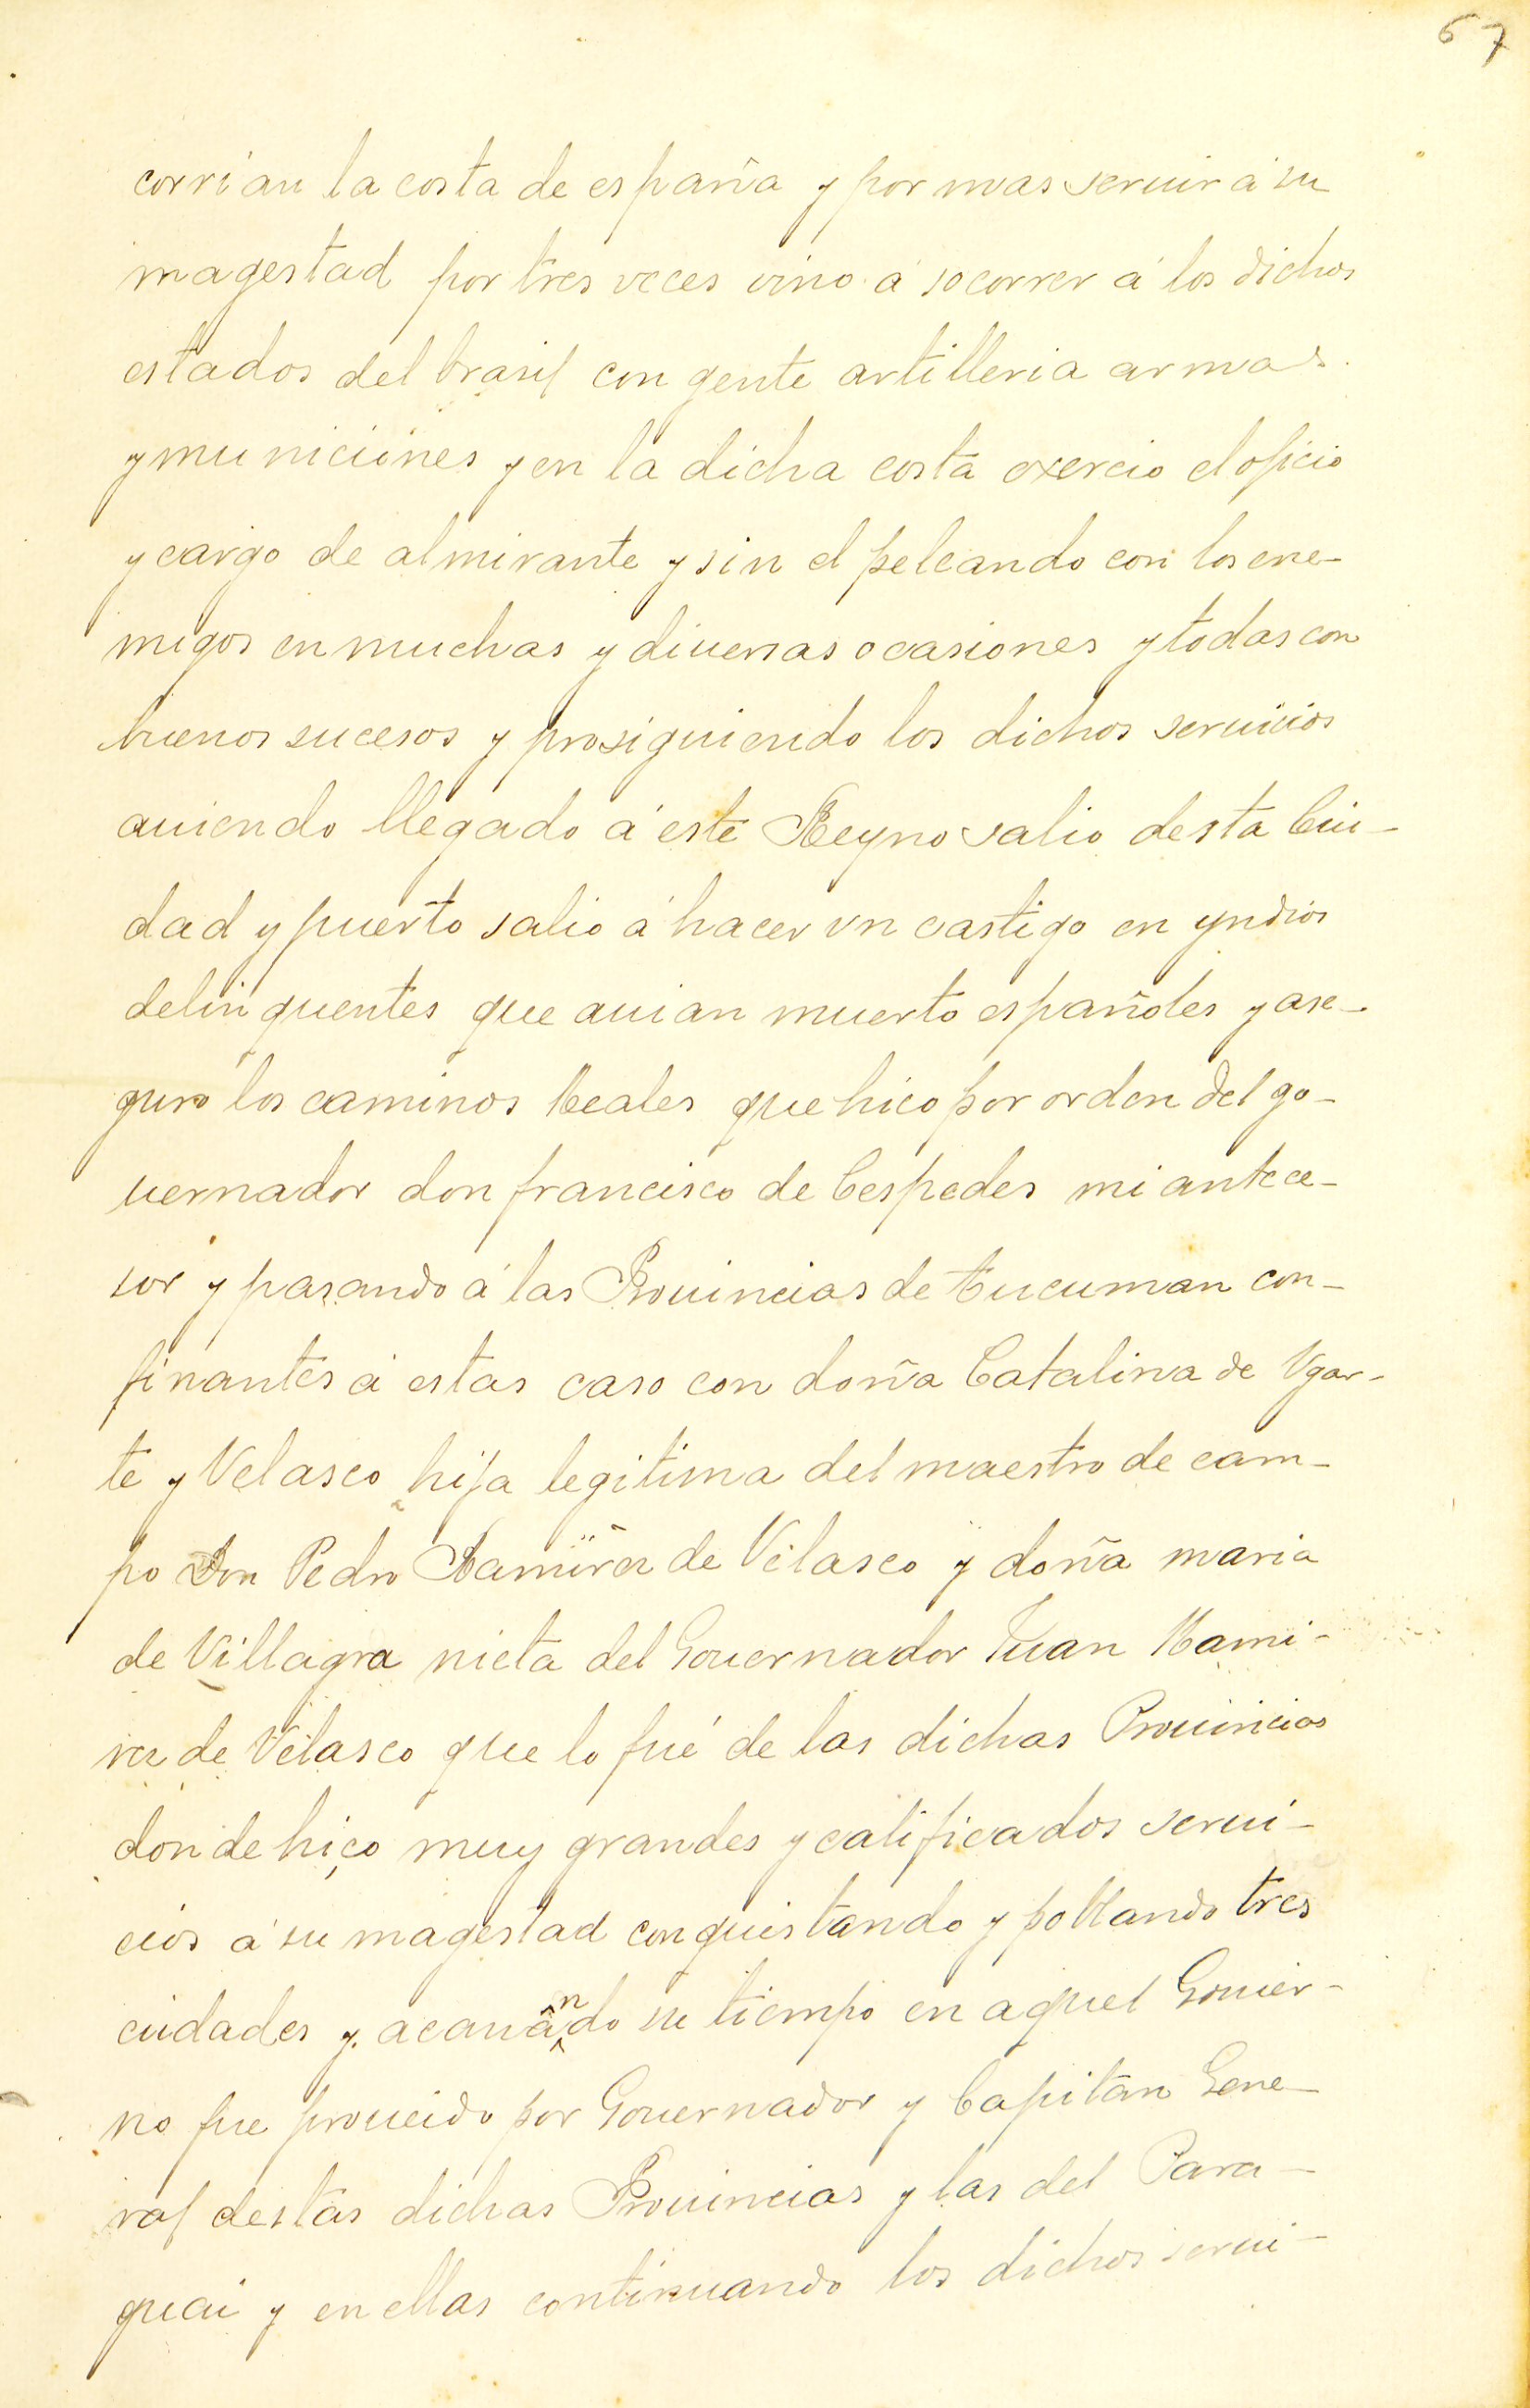 67
corrian la costa de españa y por mas seruir á su
magestad por tres veces vino á socorrer á los dichos
estados del brasil con gente artilleria armas.
y municiones y en la dicha costa exercio el oficio
y cargo de almirante y sin el peleando con los ene-
migos en muchas y diuersas ocasiones y todas con
buenos sucesos y prosiguiendo los dichos seruicios
auiendo llegado á este Reyno salio desta Ciu-
dad y puerto salio á hacer vn castigo en yndios
delinquentes que auian muerto españoles y ase-
guro los caminos Reales que hico por orden del go-
uernador don francisco de Cespedes mi antece-
sor y pasando á las Prouincias de tucuman con-
finantes á estas caso con doña Catalina de Vgar-
te y Velasco hija legitima del maestro de cam-
po Don Pedro Ramirez de Velasco y doña maria
de Villagra nieta del Gouernador Juan Rami-
rez de Velasco que lo fué de las dichas Prouincias
donde hiço muy grandes y calificados serui-
cios á su magestad conquistando y poblando tres
ciudades y acauando su tiempo en aquel Gouier-
no fue proueido por Gouernador y Capitan Gene-
ral destas dichas Prouincias y las del Para-
guai y en ellas continuando los dichos serui-